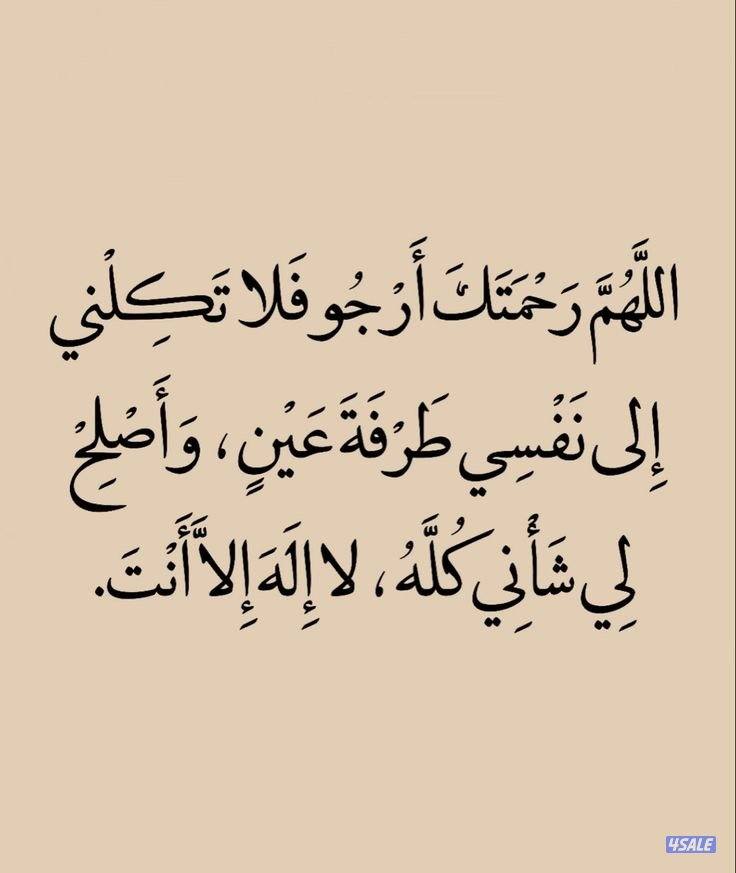 اللَّهُمَّ رَحْمَتَكَ أَرْجُو فَلا تَكِلْني
إِلى نَفْسِي طَرْفَةَ عَيْنٍ، وَأَصْلِحْ
لِي شَأْنِي كُلَّهُ، لا إِلَهَ إِلاَّ أَنْتَ.
4SALE